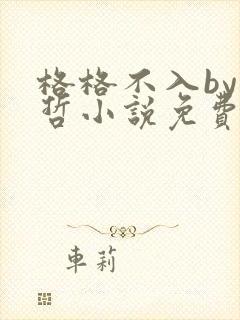 格格不入by
哲小說免費
車莉